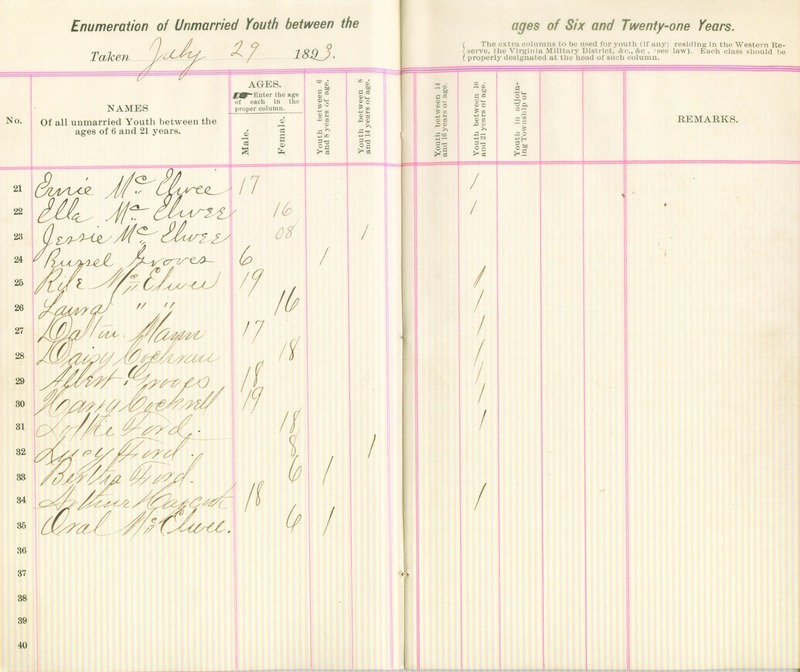 Enumeration of Unmarried Youth between the ages of Six and Twenty-one Years.
Taken July 29 1893.
The extra columns to be used for youth (if any) residing in the Western Re-
serve, the Virginia Military District, &c., &c., (see law). Each class should be
properly designated at the head of such column.
No.
NAMES
Of all unmarried Youth between the
ages of 6 and 21 years.
AGES.
Enter the age
of each in the
proper column.
Male.
Female.
Youth between 6
and 8 years of age.
Youth between 8
and 14 years of age.
Youth between 14
and 16 years of age.
Youth between 16
and 21 years of age.
Youth in adjoin-
ing Township of
REMARKS.
21 Ernie McElwee 17 /
22 Ella McElwee 16 /
23 Jessie McElwee 08 /
24 Russel Groves 6 /
25 Rile McElwee 19 /
26 Laura " " 16 /
27 Mann 17 /
28 Daisy Cochran 18 /
29 Albert Groves 18 /
30 Harry Cocknell 19 /
31 Lottie Ford. 18 /
32 Lucy Ford. 8 /
33 Bertha Ford. 6 /
34 Arthur 18 /
35 Oral McElwee. 6 /
36
37
38
39
40